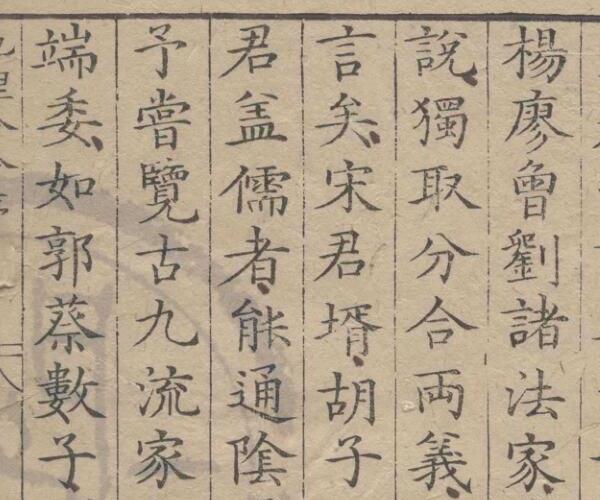 楊廖曾劉諸法家、
說、獨取分合両義、
言矣、宋君壻、胡子
君盖儒者、能通陰
予嘗覽古九流家
端委、如郭蔡數子、